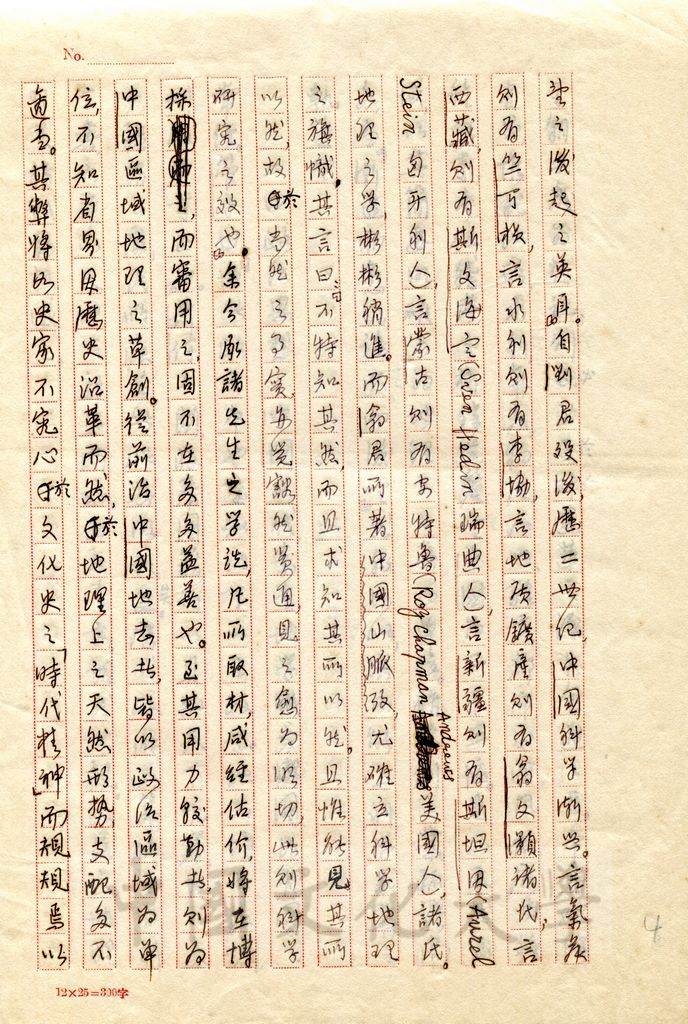 No.
望之後起之英耳。自劉君歿後,歷二世紀,中國科學漸興。言氣候
則有竺可楨,言水利則有李協,言地質鑛產則有翁文灝諸氏,言
西藏則有斯文海定(Sven Hedin 瑞典人),言新疆則有斯坦因(Aurel
Stein 匈牙利人),言蒙古則有安特魯(Roy Chapman Andrews 美國人)諸氏。
地理之學,彬彬稍進。而翁君所著中國山脈攷,尤確立科學地理
之旗幟,其言曰:不特知其然,而且求知其所以然。且惟能見其所
以然,故於當然之事實,亦覺豁然貫通,見之愈為深切,此則科學
研究之效也。余今承諸先生之學說,凡所取材,咸經估價,將在博
採之,而審用之,固不在多多益善也。至其用力較勤者,則為
中國區域地理之草創。從前治中國地志者,皆以政治區域為單
位,不知省界因歷史沿革而然,於地理上之天然形勢,支配多不
適當。其弊將如史家不究心於文化史之「時代精神」而規規焉以
12×25=300字
中國文化大學
4